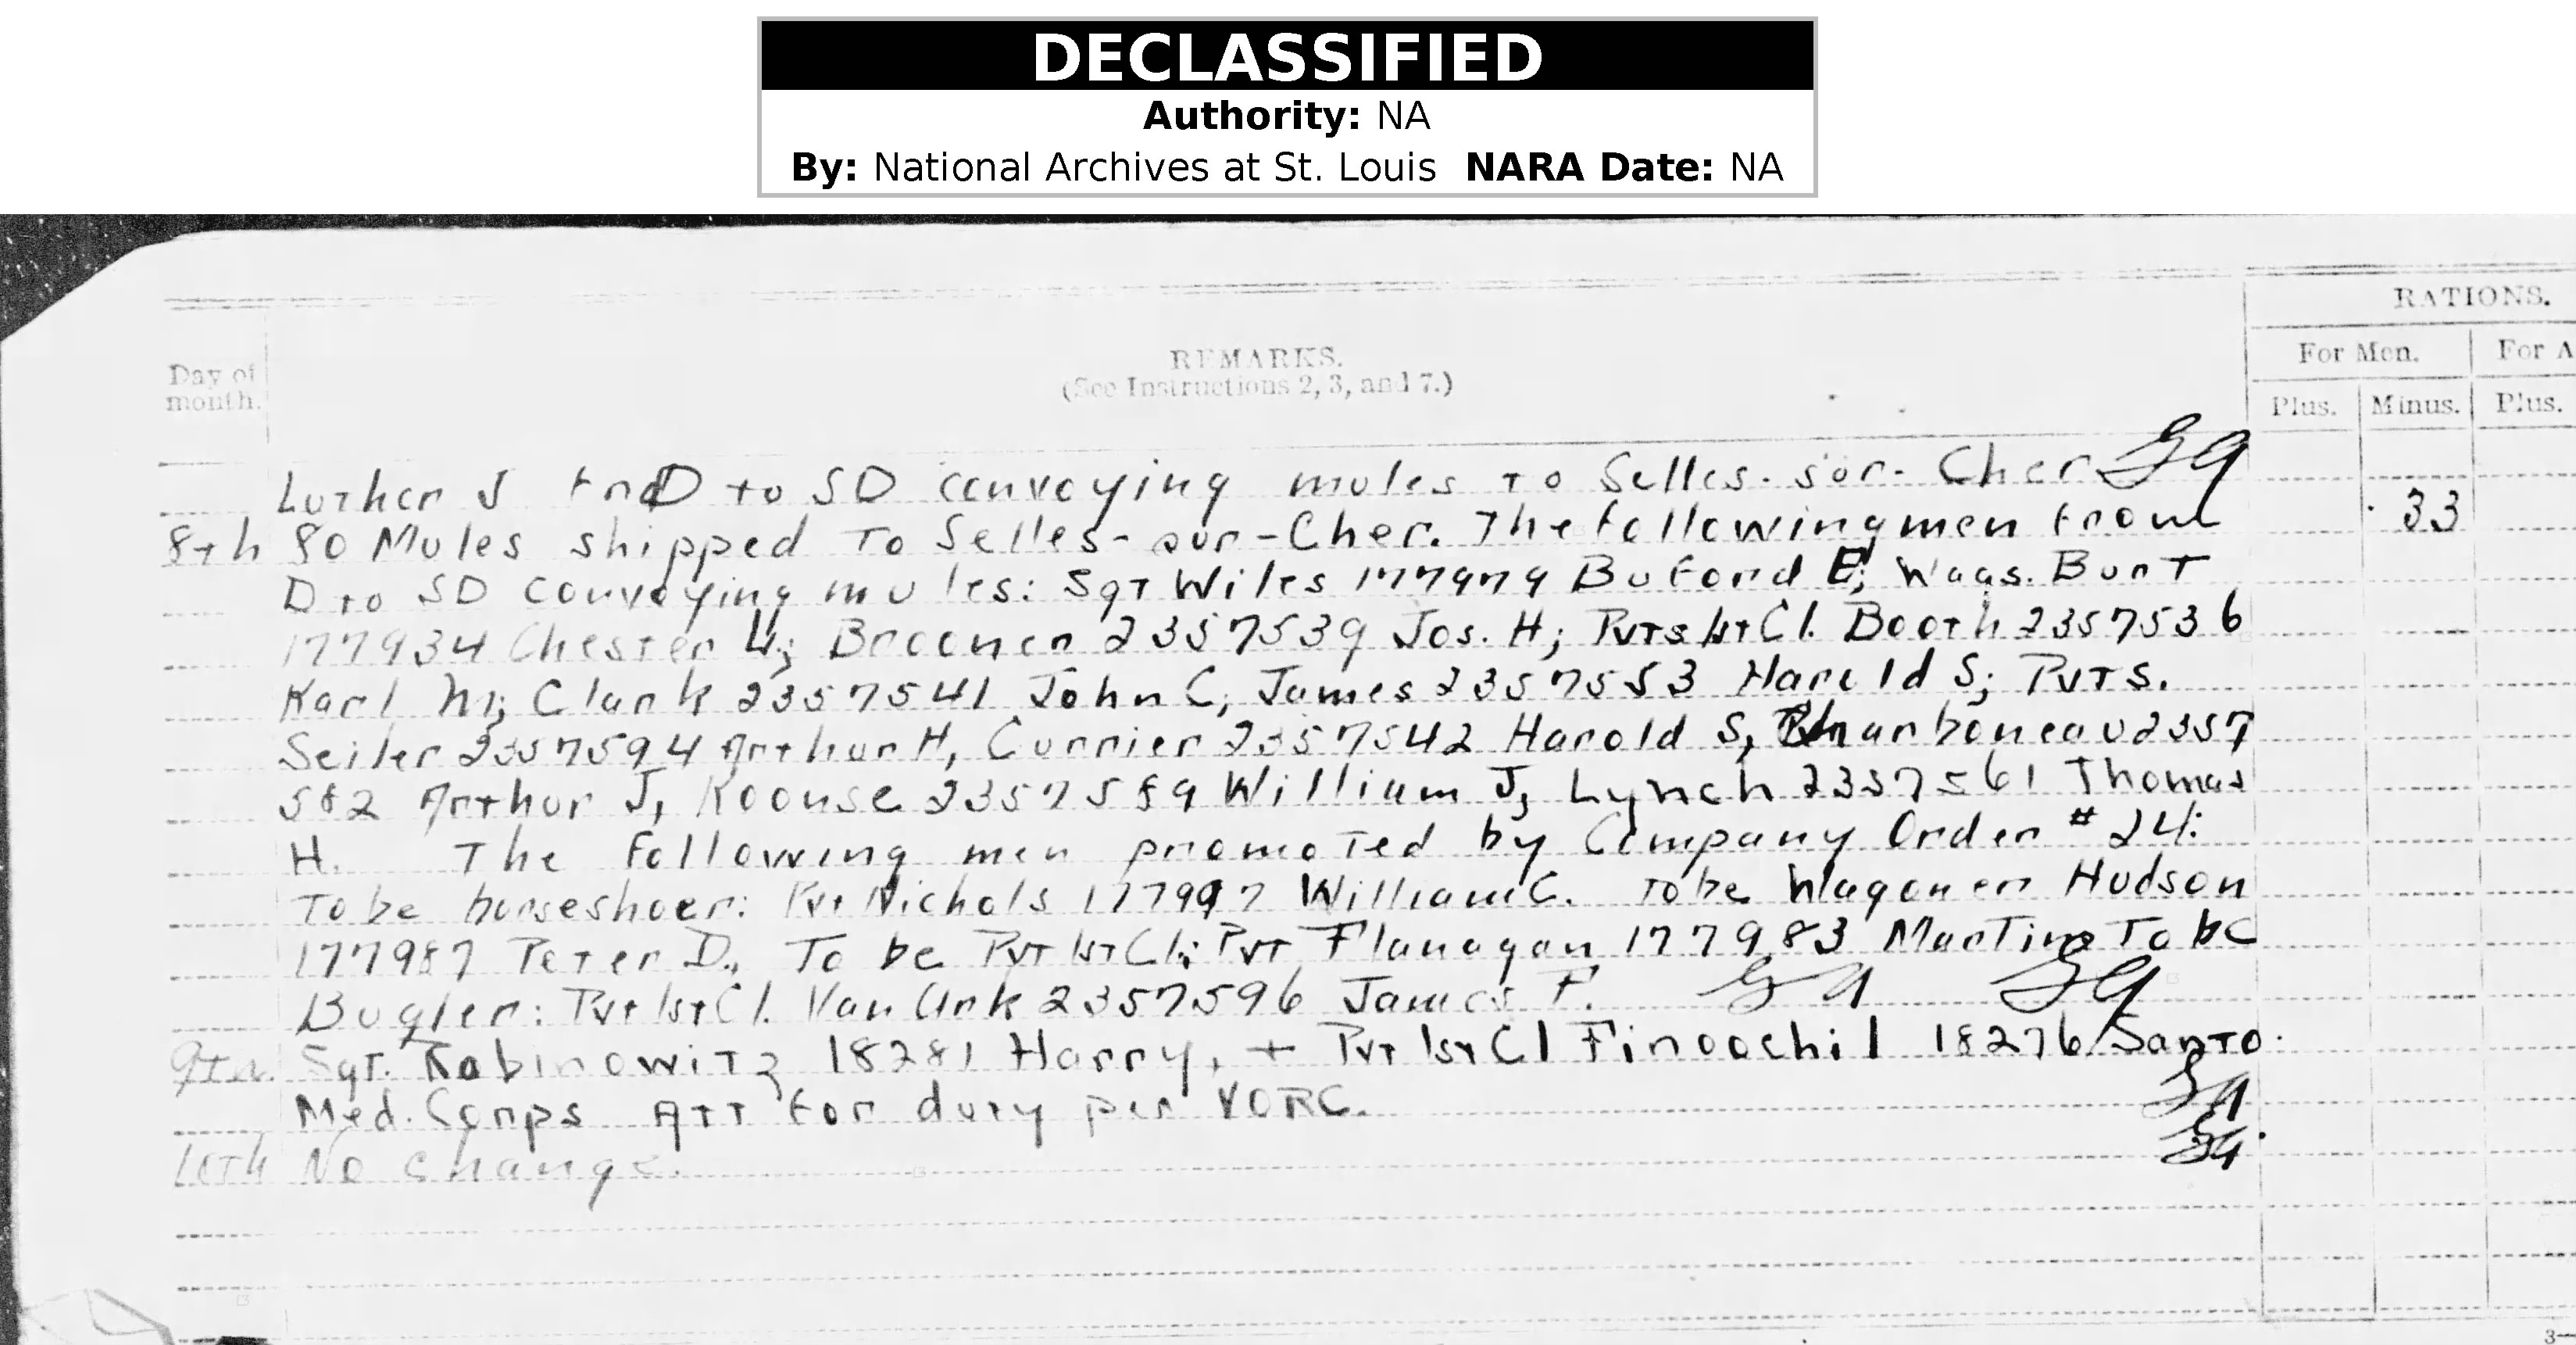 DECLASSIFIED
Authority: NA
By: National Archives at St. Louis NARA Date: NA
RATIONS.
REMARKS.
(See Instructions 2, 3, and 7.)
Day of
month.
For Men.
For A
Plus.
Minus.
Plus.
Luther J frnD to SD convoying mules to Selles-sur-Cher
8th 80 Mules shipped To Selles-sur-Cher. The following men from 33
D to SD convoying mules: Sgt Wiles 177979 Buford E; Wags. Burt
177934 Chester W; Brooner 2357539 Jos. H; Pvts 1st Cl. Booth 2357536
Karl M; Clark 2357541 John C, James 2357553 Harold S; Pvts.
Seiler 2357594 Arthur H, Currier 2357542 Harold S, Charboneau 2357
582 Arthur J, Koouse 2357559 William J, Lynch 2357561 Thomas
H. The following men promoted by Company Order # 24:
To be horseshoer: Pvt Nichols 177997 William C. To be Wagoner Hudson
177987 Peter D., To be Pvt 1st Cl; Pvt Flanagan 177983 Martin To be
Bugler: Pvt 1st Cl. Van Ark 2357596 James F.
9th Sgt. Rabinowitz 18281 Harry, + Pvt 1st Cl Finoochil 18276 Santo.
Med. Corps Att for duty per VORC.
10th No change.
3—